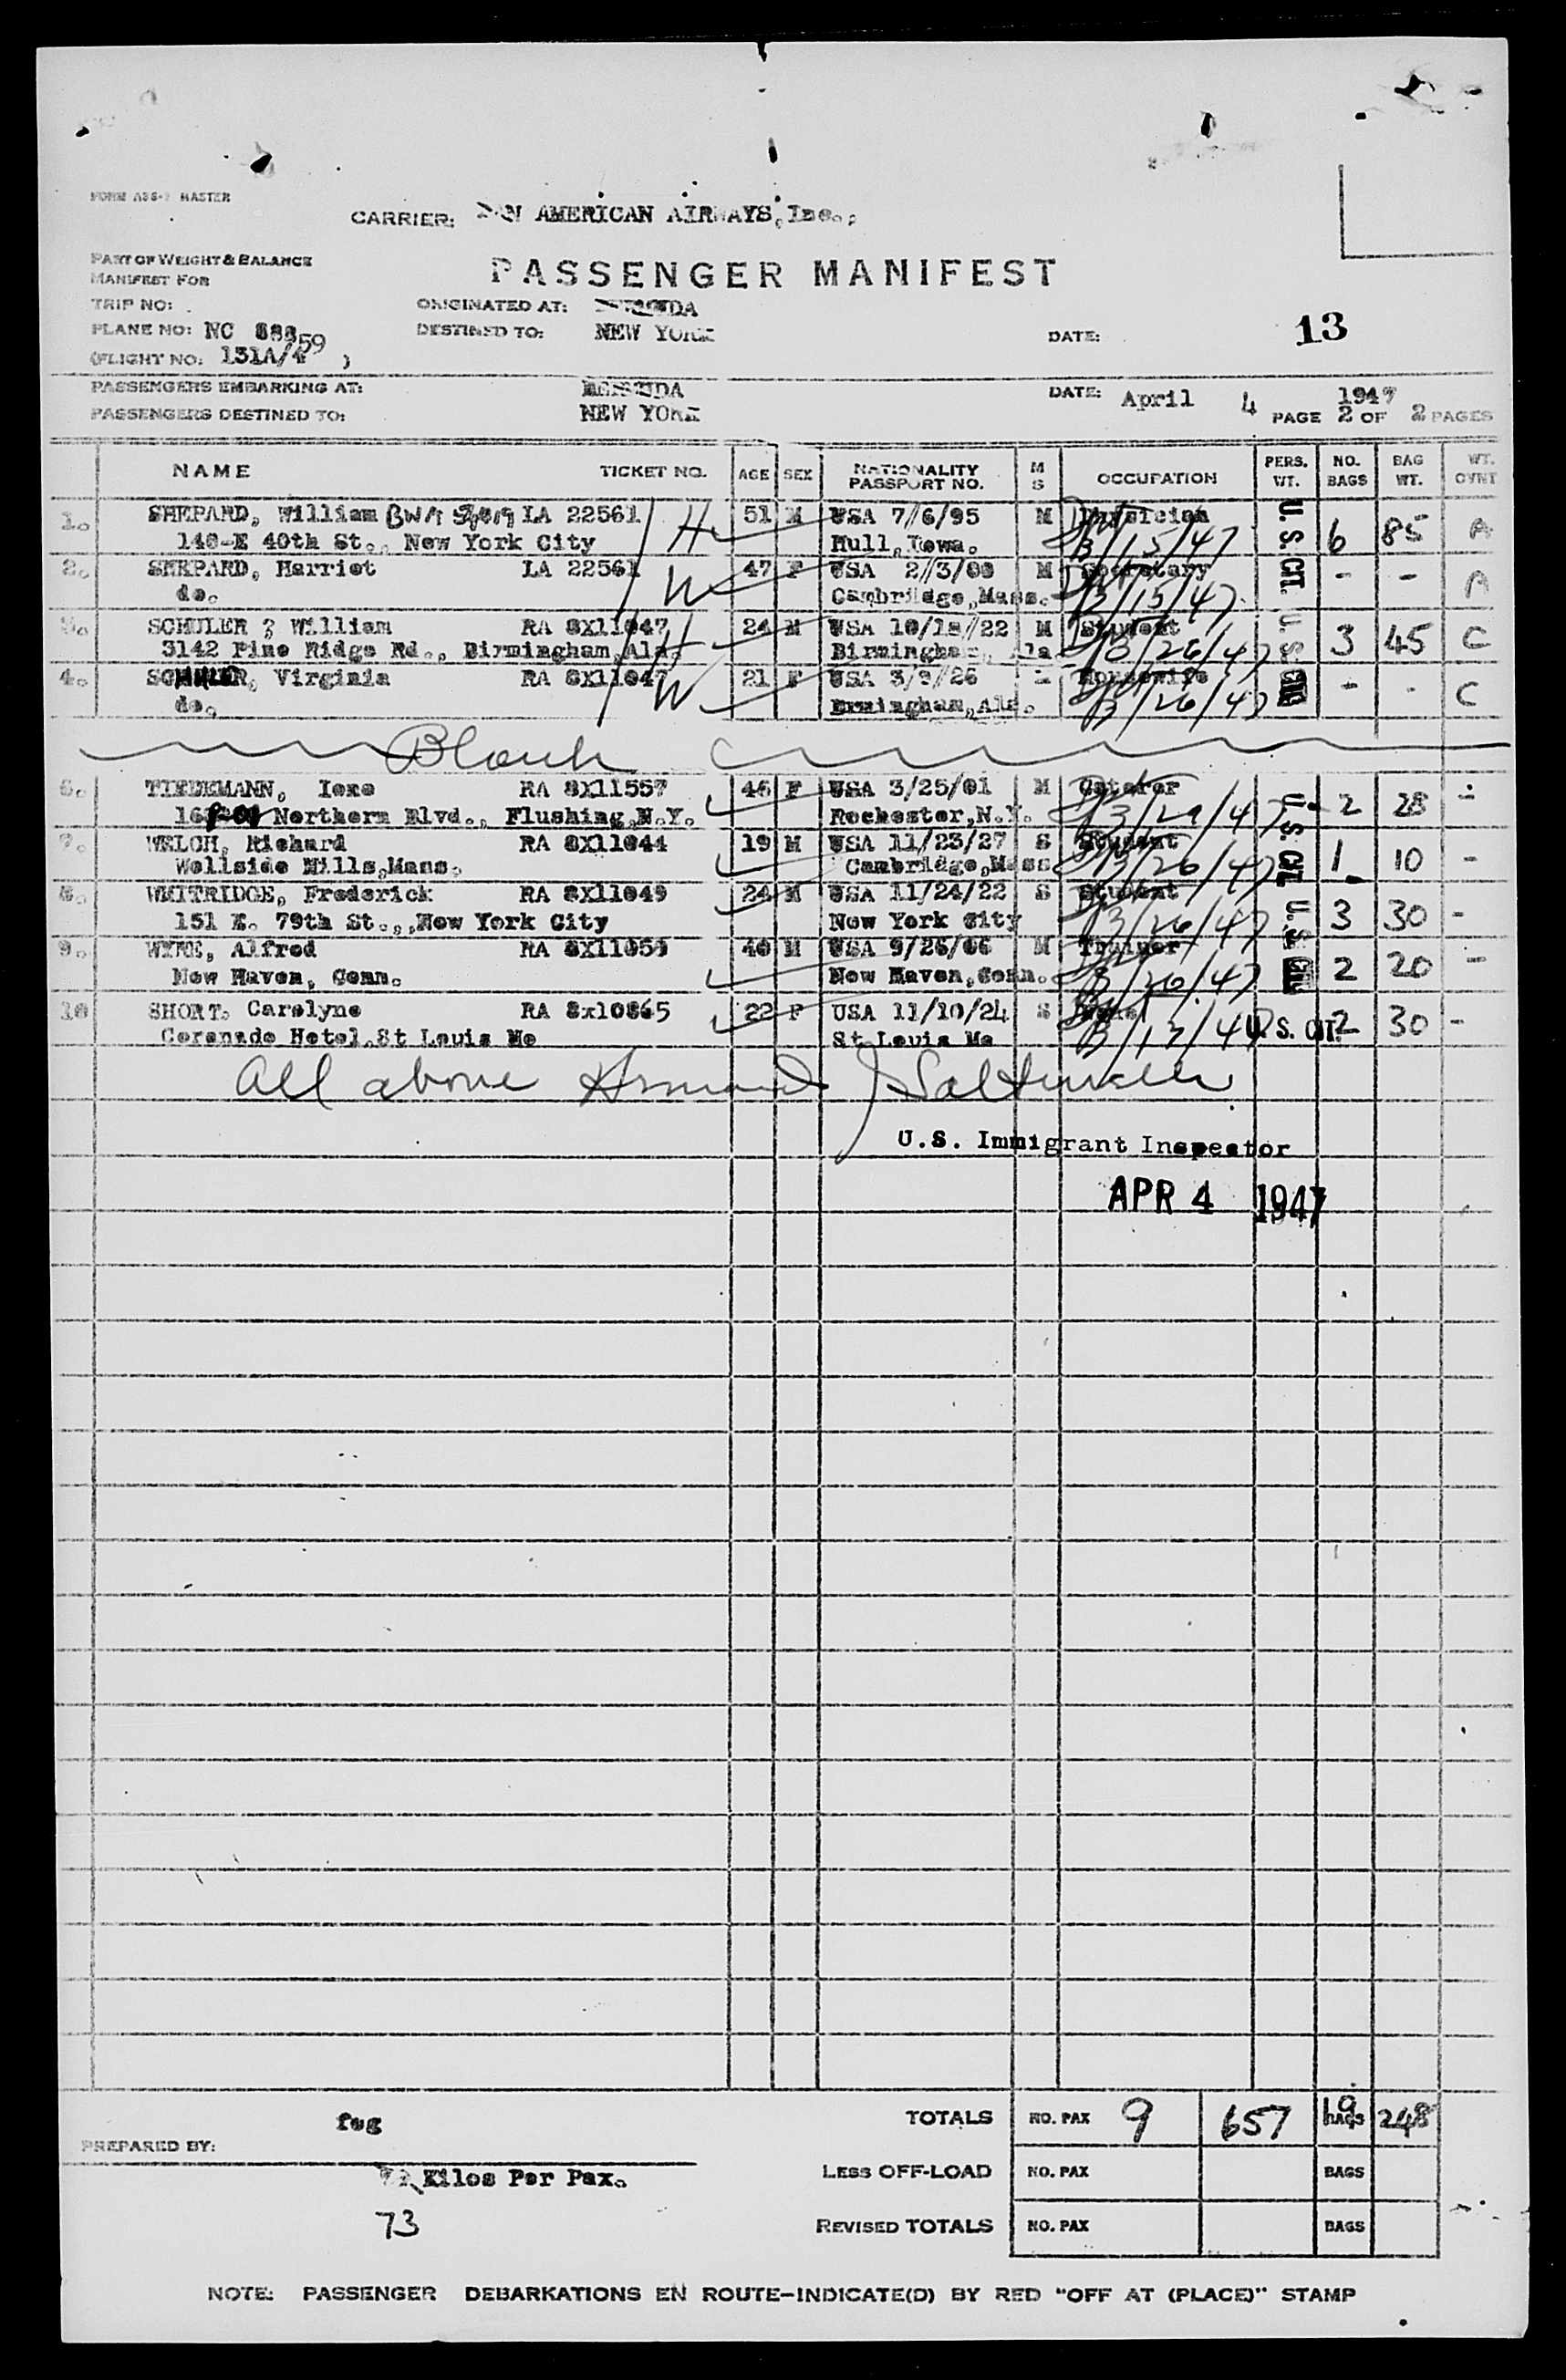 FORM ASS-1 MASTER
CARRIER: PAN AMERICAN AIRWAYS, Inc.,
PART OF WEIGHT & BALANCE
MANIFEST FOR
PASSENGER MANIFEST
TRIP NO: ORIGINATED AT: BERMUDA
PLANE NO: NC 88859 DESTINED TO: NEW YORK DATE: 13
(FLIGHT NO: 131A/4 )
PASSENGERS EMBARKING AT: BERMUDA DATE: April 4 1947
PASSENGERS DESTINED TO: NEW YORK PAGE 2 OF 2 PAGES
NAME TICKET NO. AGE SEX NATIONALITY PASSPORT NO. M S OCCUPATION PERS. WT. NO. BAGS BAG WT. WT. CVNT
1. SHEPARD, William LA 22561 H 51 M USA 7/6/95 M Physician U.S. CIT. 6 85 A
140-E 40th St., New York City Hull, Iowa. B/15/47
2. SHEPARD, Harriet LA 22561 W 47 F USA M Secretary - - A
do. Cambridge, Mass. B/15/47
3. SCHULER, William RA 8X11047 H 24 M USA M Student U.S. CIT. 3 45 C
3142 Pine Ridge Rd., Birmingham, Ala. Birmingham, Ala. B/26/47
4. SCHULER, Virginia RA 8X11047 W 21 F USA Housewife - - C
do. Birmingham, Ala. B/26/47
Blank
6. TIEDEMANN, RA 8X11557 46 F USA 3/25/01 M U.S. CIT. 2 28 -
Northern Blvd., Flushing, N.Y. Rochester, N.Y.
7. WELCH, Richard RA 8X11044 19 M USA 11/23/27 S Student 1 10 -
Wellside Hills, Mans. Cambridge, Mass B/26/47
8. WHITRIDGE, Frederick RA 8X11049 24 M USA 11/24/22 S Student U.S. CIT. 3 30 -
151 E. 79th St.,,New York City New York City B/26/47
9. Alfred RA 8X11050 40 M USA 9/26/06 M Trainer 2 20 -
New Haven, Conn. New Haven, Conn. B/26/47
10 SHORT. Carolyne RA 8x10865 22 F USA 11/10/24 S U.S. CIT. 2 30 -
Coronado Hotel, St Louis Mo St Louis Mo B/13/47
All above
U.S. Immigrant Inspector
APR 4 1947
TOTALS NO. PAX 9 657 19 BAGS 248
PREPARED BY: feg
Kilos Per Pax. LESS OFF-LOAD NO. PAX BAGS
73 REVISED TOTALS NO. PAX BAGS
NOTE: PASSENGER DEBARKATIONS EN ROUTE-INDICATE(D) BY RED "OFF AT (PLACE)" STAMP